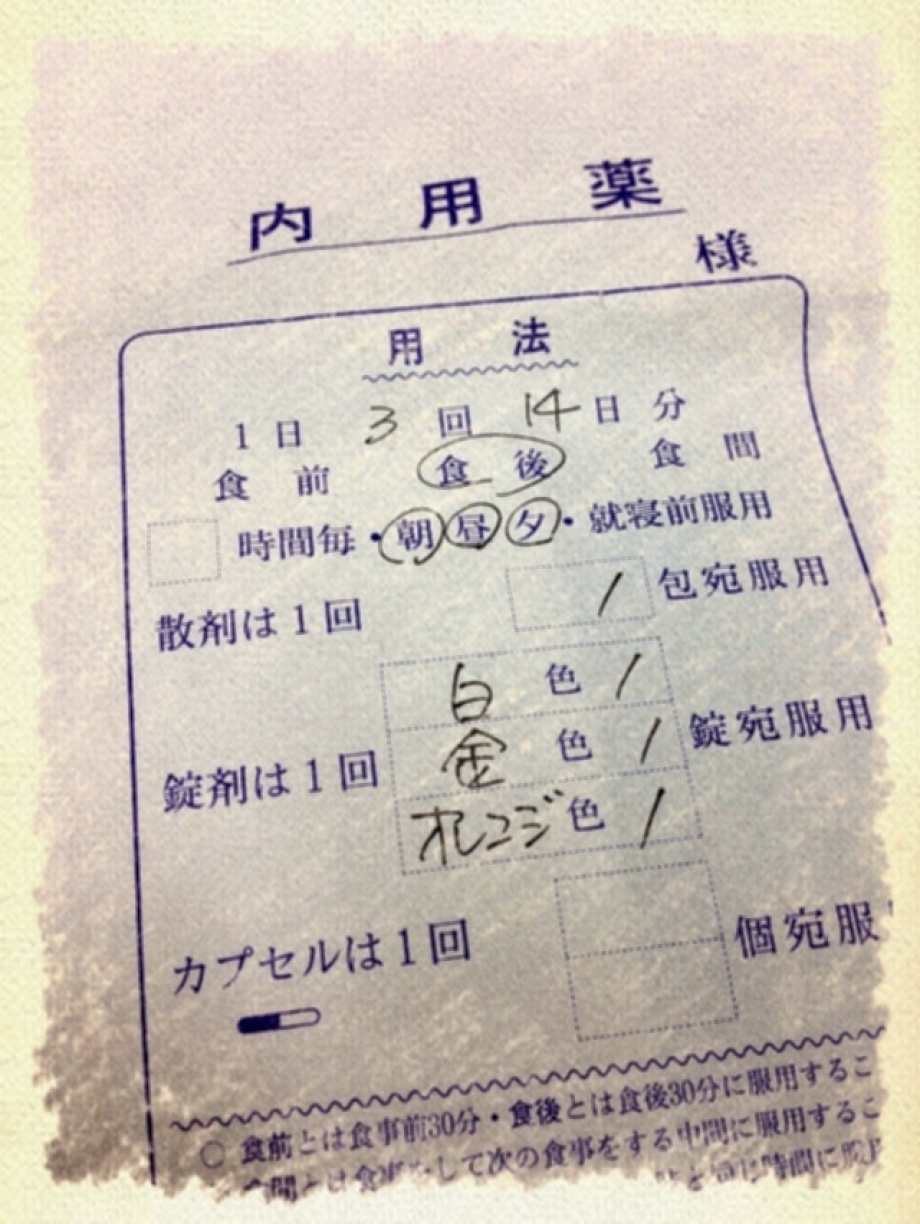 内用薬
様
用法
1日 3 回 14 日分
食前 食後 食間
時間毎・朝昼夕・就寝前服用
散剤は1回 1 包宛服用
白色 1
錠剤は1回 金色 1 錠宛服用
オレンジ色 1
カプセルは1回 個宛服
○ 食前とは食事前30分・食後とは食後30分に服用するこ
食間とは食事をして次の食事をする中間に服用するこ